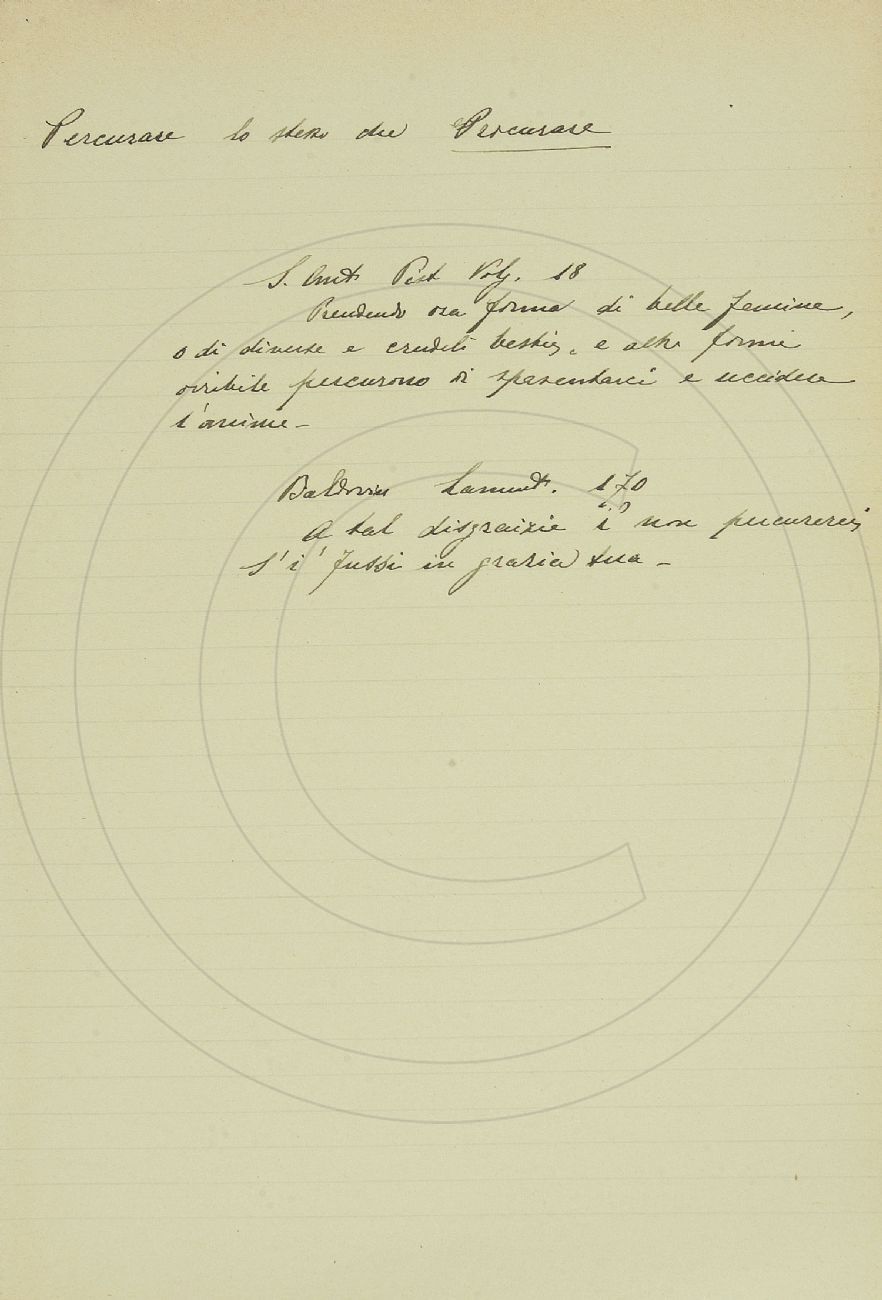 Percurare lo stesso che Procurare
S. Ant. Pist Volg. 18
Prendendo ora forma di belle femine,
o di diverse e crudeli bestie, e altre forme
oribile percurono di spaventarci e uccidere
l'anime -
Baldovin Lament. 170
A tal disgrazie i' non percurerei
S' i' fussi in grazia tua -